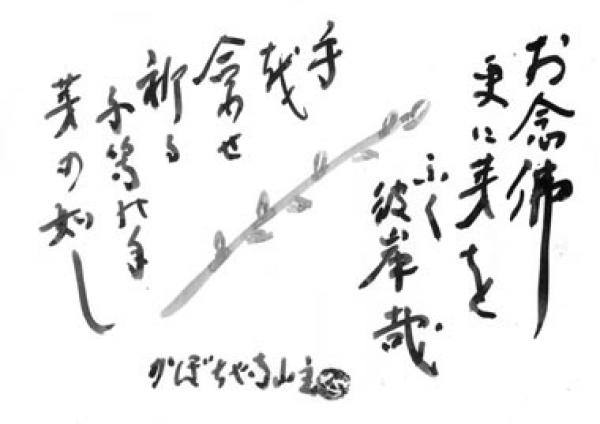 お念佛
更に芽を
ふく
彼岸哉
手
を
合わせ
祈る
子等の手
芽の如し
かぼちゃ寺山主